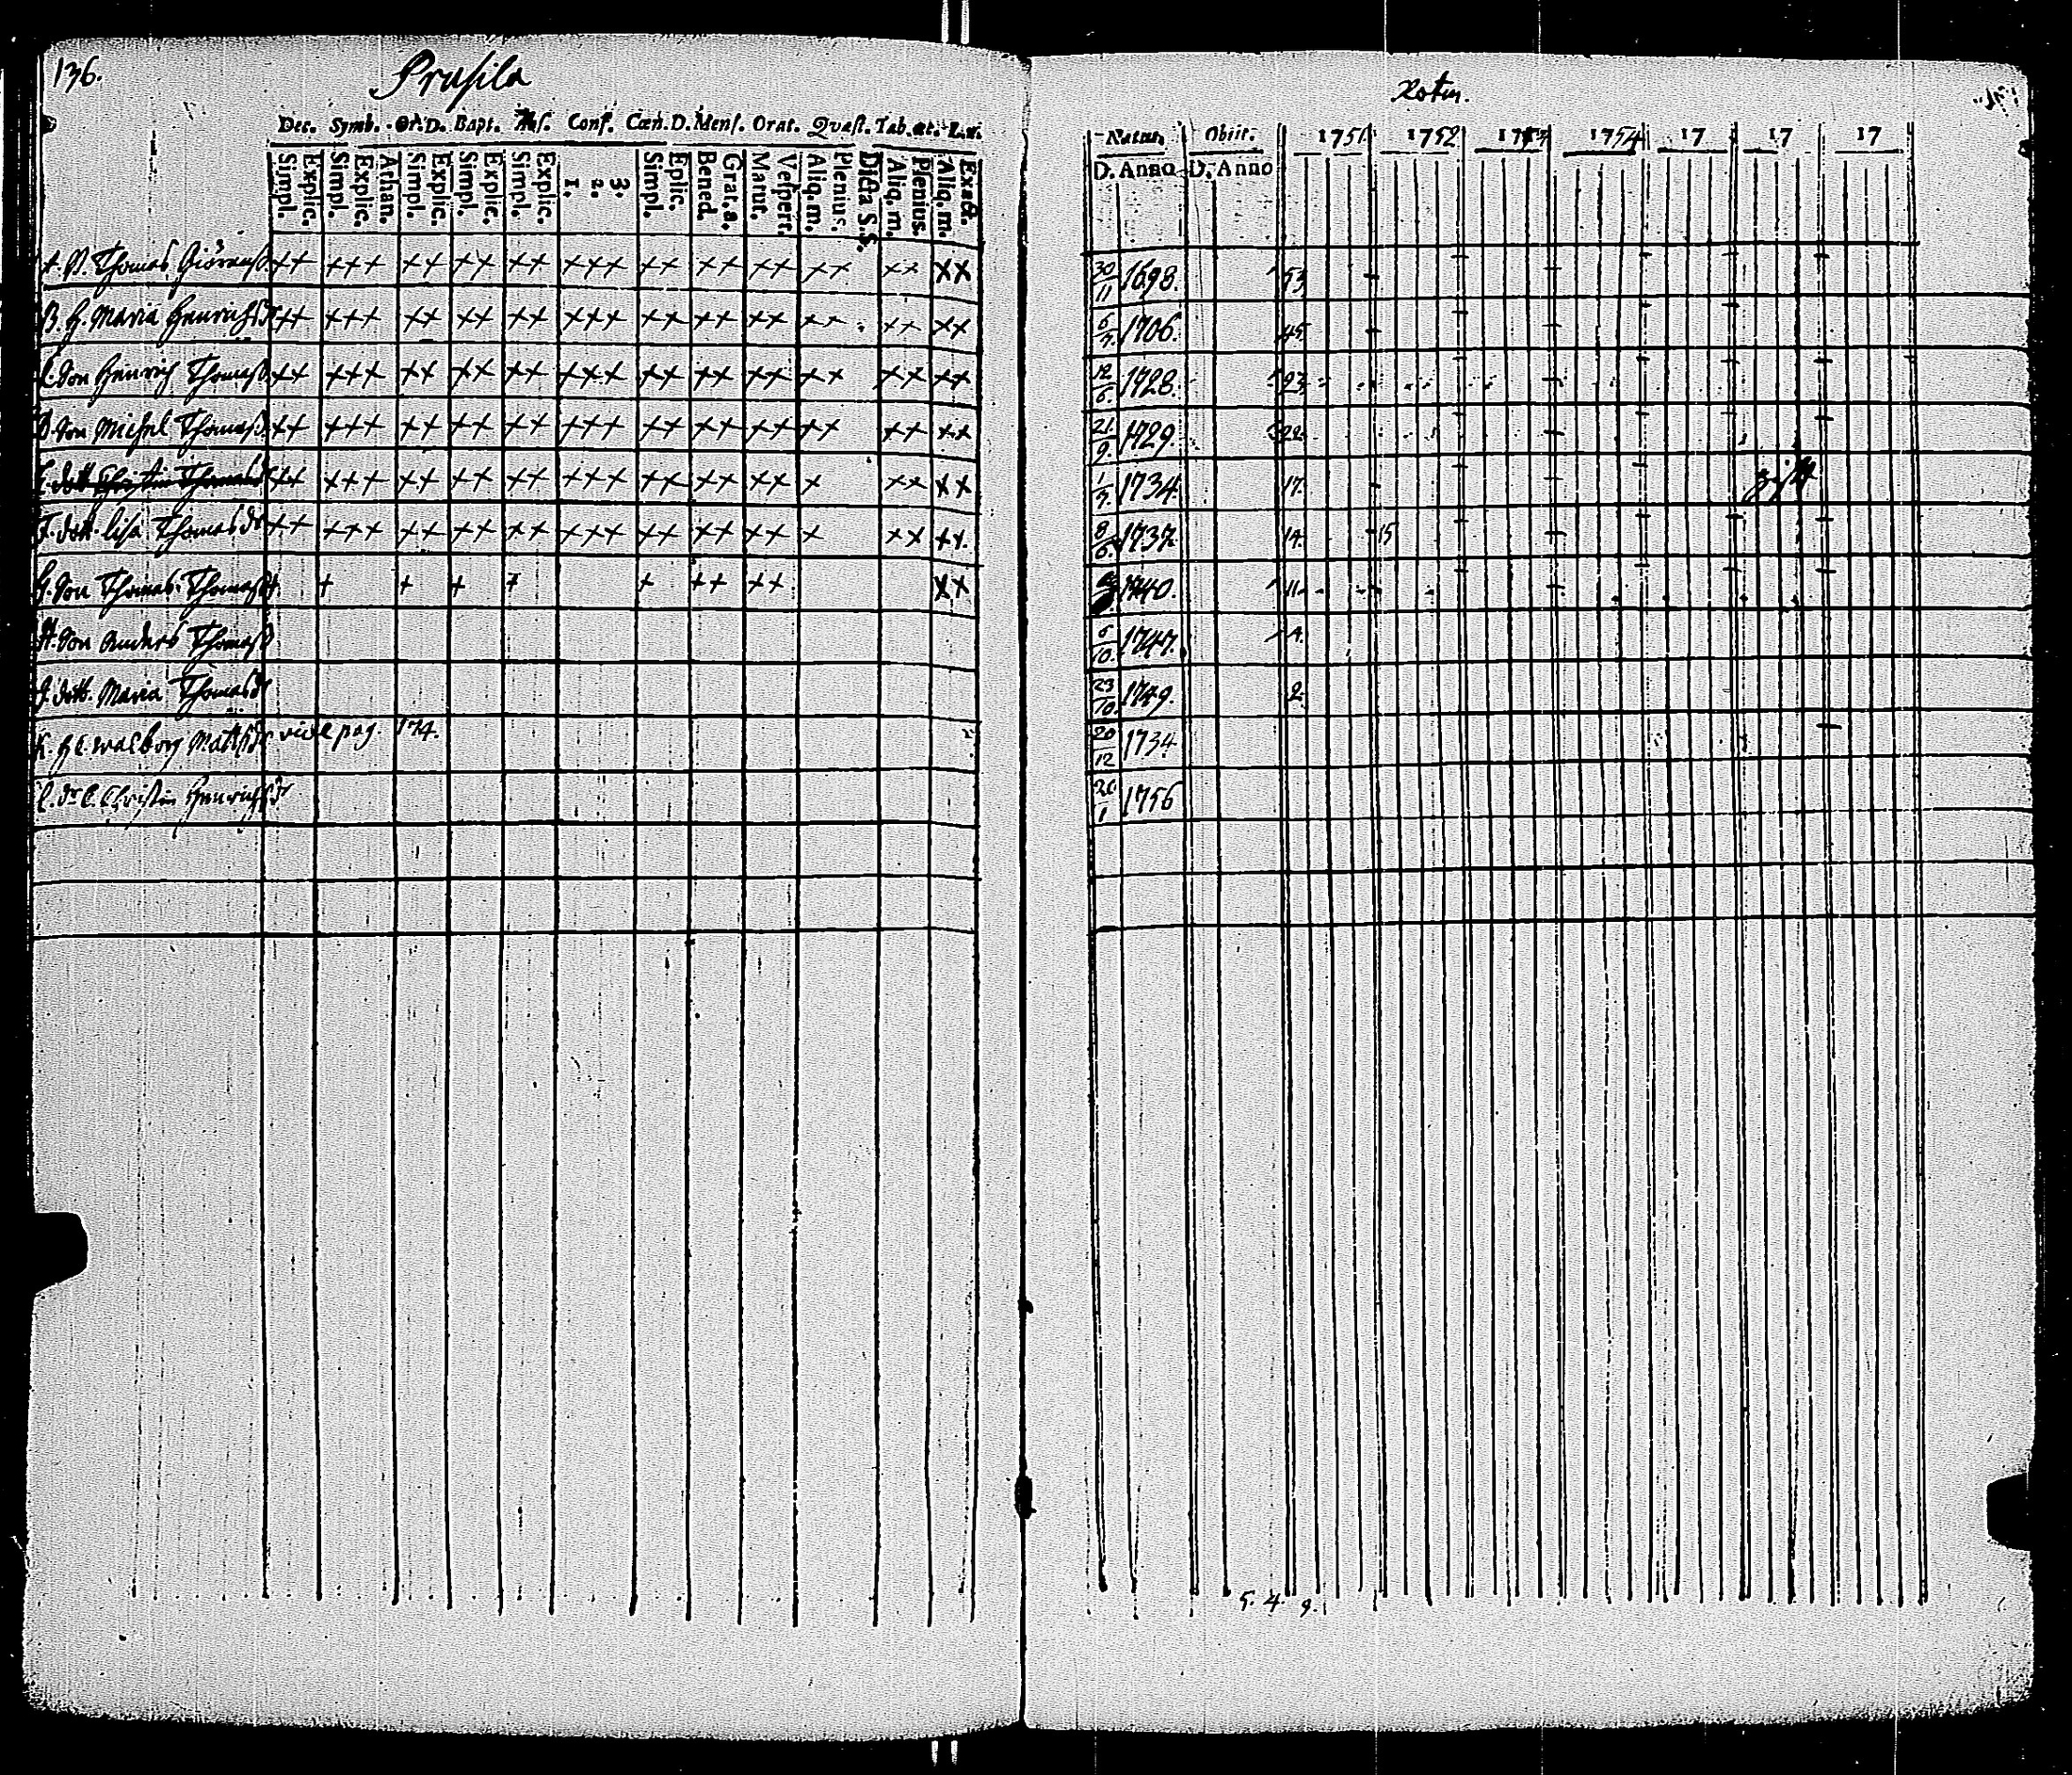 136.
Prusila
Dec. Symb. Or. D. Bapt. Conf. Cœn. D. Mens. Orat. Quæst. Tab. œc.
Simpl. Explic. Simpl. Explic. Athan. Simpl. Explic. Simpl. Explic. Simpl. Explic. 1. 2. 3. Simpl. Eplic. Bened. Grat. a. Matut. Vespert. Aliq. m. Plenius. Dicta S.S. Aliq. m. Plenius. Aliq. m. Exact.
Thomas ++ +++ ++ ++ ++ +++ ++ ++ ++ ++ ++ ++
B. H. Maria Henrichsdr ++ +++ ++ ++ ++ +++ ++ ++ ++ ++ ++ ++
C. Son Henrich Thomass. ++ +++ ++ ++ ++ +++ ++ ++ ++ ++ ++ ++
D. Son Michel Thomass. ++ +++ ++ ++ ++ +++ ++ ++ ++ ++ ++ ++
E. dott Christin Thomasdr ++ +++ ++ ++ ++ +++ ++ ++ ++ + ++ ++
F. dott. Lisa Thomasdr ++ +++ ++ ++ ++ +++ ++ ++ ++ + ++ ++
G. Son Thomas Thomass + + + + + + ++ ++ ++
H. Son Anders Thomass
J. dott. Maria Thomasdr
K. H C. Walborg Mattsdr vide pag. 174.
L. dr C. Christin Henrichsdr
Natus. Obiit. 1751 1752 1753 1754 17 17 17
D. Anno D. Anno
30/11 1698. 53
6/7 1706. 45
12/6 1728. 23
21/9 1729 22
1/7 1734 17
8/6 1737 14. 15
1740. 11
5/10 1747. 4
23/10 1749. 2
20/12 1734
26/1 1756
5. 4. 9.